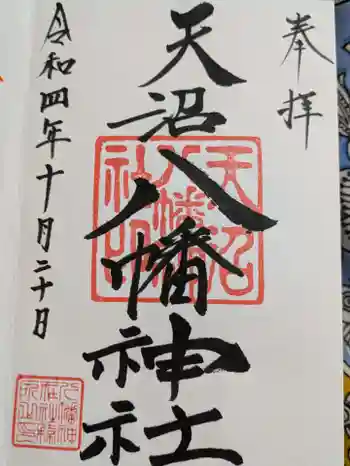 奉拝
天沼八幡神社
天沼八幡社印
令和四年十月二十日